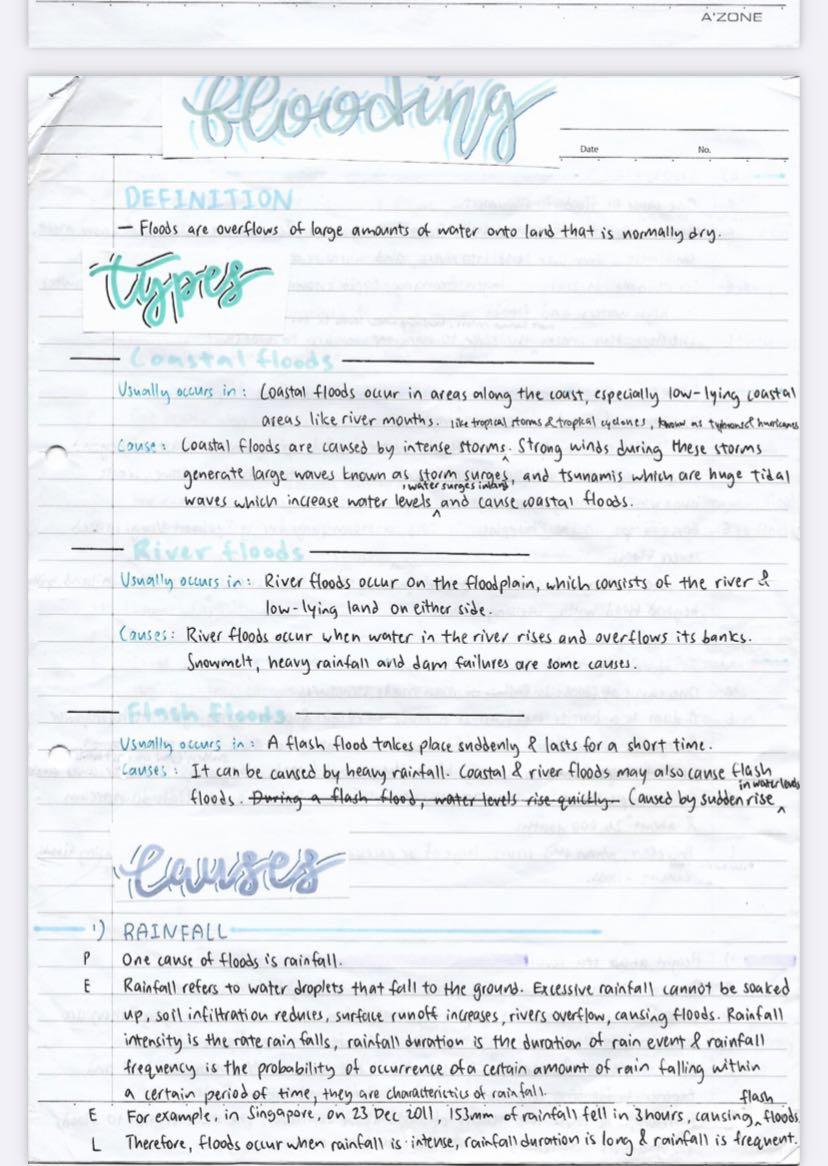 A'ZONE
flooding
Date No.
DEFINITION
— Floods are overflows of large amounts of water onto land that is normally dry.
types
Coastal floods
Usually occurs in: Coastal floods occur in areas along the coast, especially low-lying coastal
areas like river mouths. like tropical storms & tropical cyclones, known as typhoons & hurricanes
Cause: Coastal floods are caused by intense storms. Strong winds during these storms
generate large waves known as storm surges, and tsunamis which are huge tidal
, water surges inland
waves which increase water levels ^ and cause coastal floods.
River floods
Usually occurs in: River floods occur on the floodplain, which consists of the river &
low-lying land on either side.
Causes: River floods occur when water in the river rises and overflows its banks.
Snowmelt, heavy rainfall and dam failures are some causes.
Flash floods
Usually occurs in: A flash flood takes place suddenly & lasts for a short time.
Causes: It can be caused by heavy rainfall. Coastal & river floods may also cause flash
in water levels
floods. During a flash flood, water levels rise quickly. Caused by sudden rise ^
causes
1) RAINFALL
P One cause of floods is rainfall.
E Rainfall refers to water droplets that fall to the ground. Excessive rainfall cannot be soaked
up, soil infiltration reduces, surface runoff increases, rivers overflow, causing floods. Rainfall
intensity is the rate rain falls, rainfall duration is the duration of rain event & rainfall
frequency is the probability of occurrence of a certain amount of rain falling within
a certain period of time, they are characteristics of rainfall.
flash
E For example, in Singapore, on 23 Dec 2011, 153mm of rainfall fell in 3 hours, causing ^ floods.
L Therefore, floods occur when rainfall is intense, rainfall duration is long & rainfall is frequent.